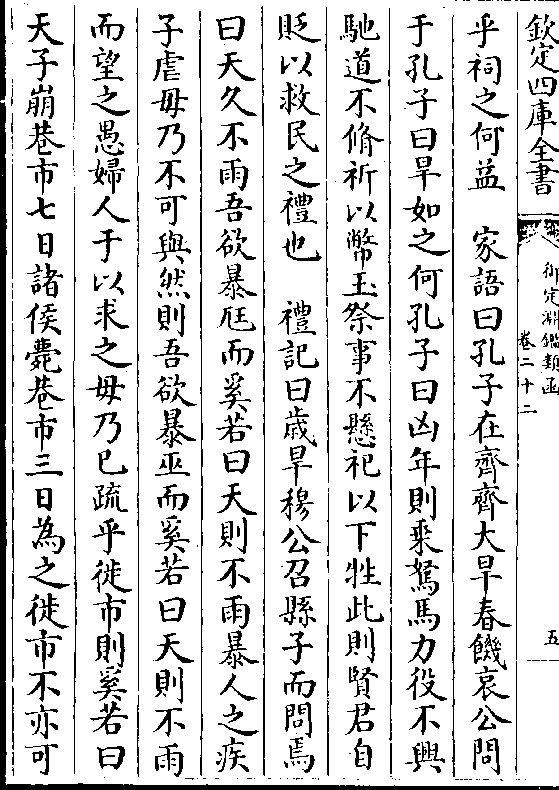 欽定四庫全書
御定淵鑑類函
卷二十二
五
乎祠之何益　家語曰孔子在齊齊大旱春饑哀公問
于孔子曰旱如之何孔子曰凶年則乘駑馬力役不興
馳道不脩祈以幣玉祭事不懸祀以下牲此則賢君自
貶以救民之禮也　禮記曰歲旱穆公召縣子而問焉
曰天久不雨吾欲暴尫而奚若曰天則不雨暴人之疾
子虐毋乃不可與然則吾欲暴巫而奚若曰天則不雨
而望之愚婦人于以求之毋乃已疏乎徙市則奚若曰
天子崩巷市七日諸侯薨巷市三日為之徙市不亦可